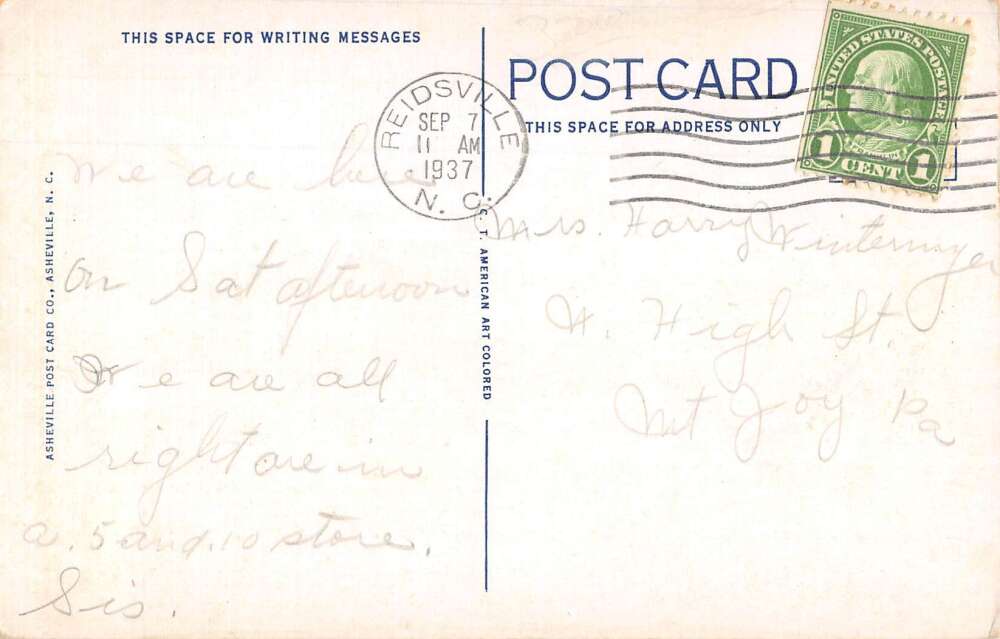 THIS SPACE FOR WRITING MESSAGES
POST CARD
THIS SPACE FOR ADDRESS ONLY
REIDSVILLE
SEP 7
11 AM
1937
N. C.
UNITED STATES POSTAGE
FRANKLIN
1 CENT 1
ASHEVILLE POST CARD CO., ASHEVILLE, N. C.
C. T. AMERICAN ART COLORED
We are here
on Sat afternoon
We are all
right are in
a. 5 and .10 store.
Sis.
Mrs. Harry Wintermyer
W. High St.
Mt Joy Pa